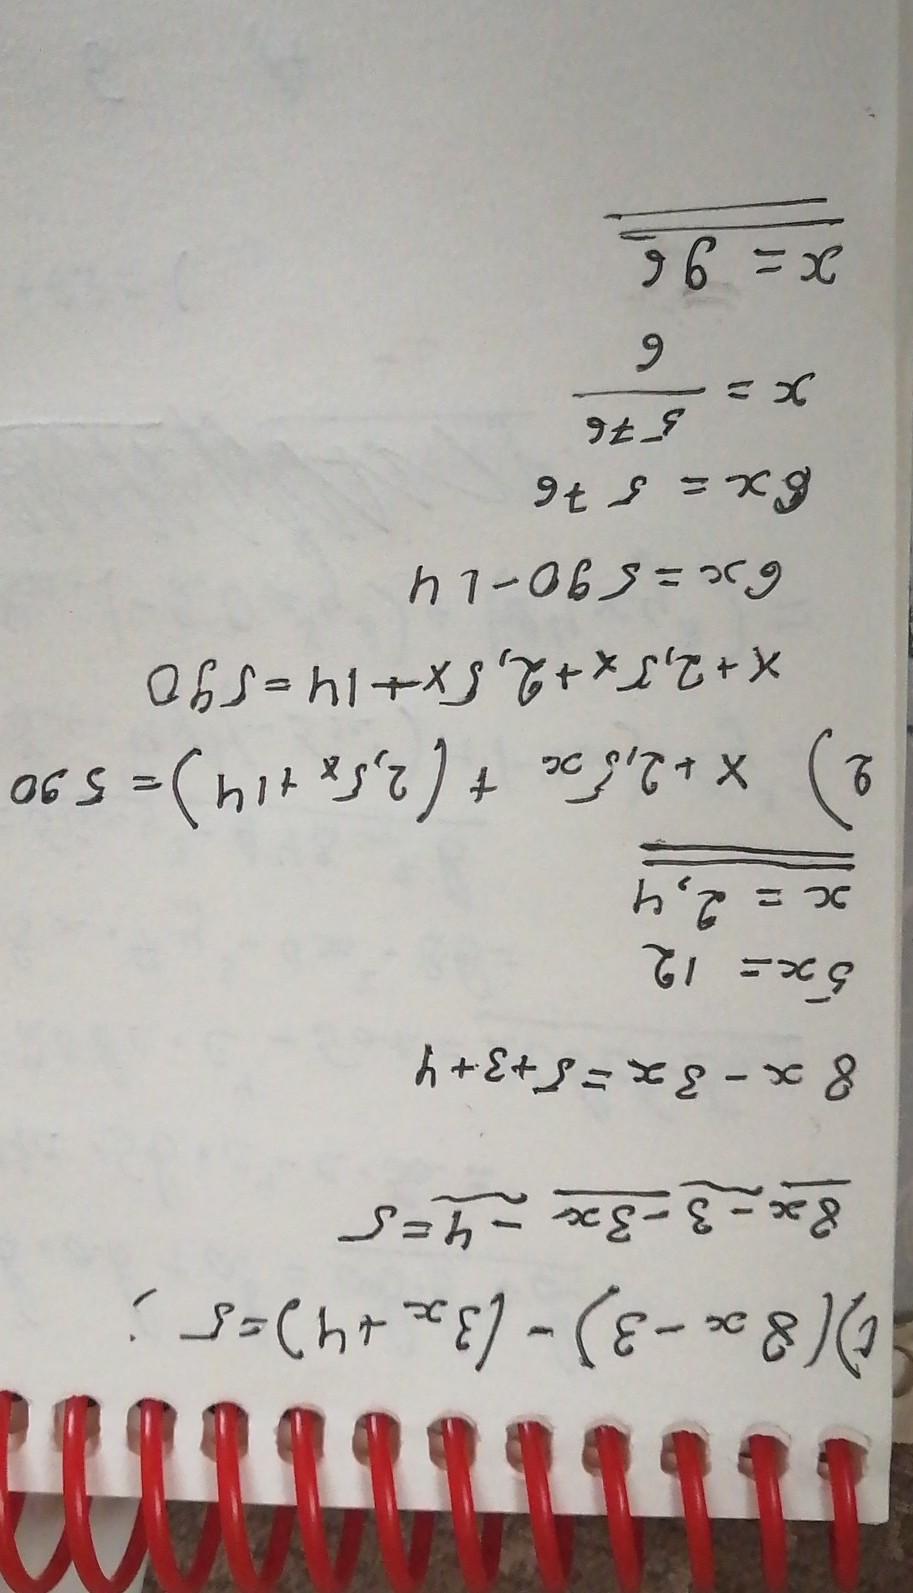 1) (8x-3) - (3x+4)=5;
8x-3-3x-4=5
8x-3x=5+3+4
5x=12
x=2,4
2) x+2,5x + (2,5x+14)=590
x+2,5x+2,5x+14=590
6x=590-14
6x=576
x=576/6
x=96